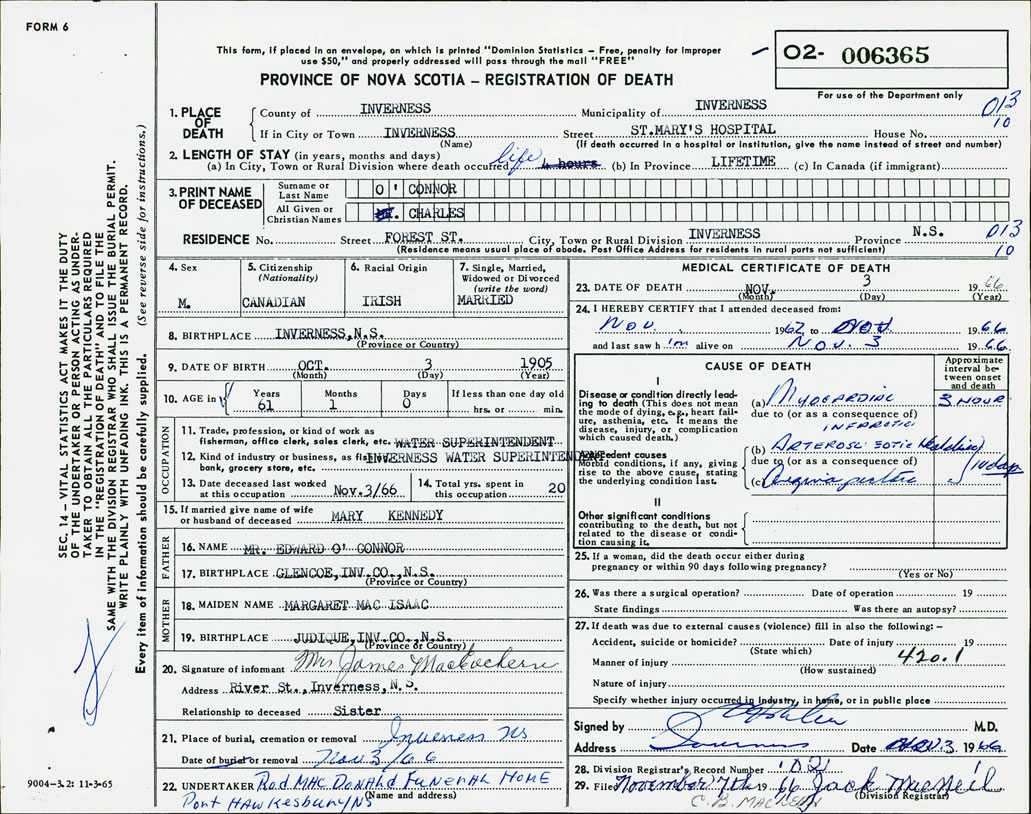 FORM 6
This form, if placed in an envelope, on which is printed "Dominion Statistics – Free, penalty for improper
use $50," and properly addressed will pass through the mail "FREE"
PROVINCE OF NOVA SCOTIA – REGISTRATION OF DEATH
O2- 006365
For use of the Department only
013
10
1. PLACE OF DEATH
County of INVERNESS Municipality of INVERNESS
If in City or Town INVERNESS Street ST.MARY'S HOSPITAL House No.
(Name) (If death occurred in a hospital or institution, give the name instead of street and number)
2. LENGTH OF STAY (in years, months and days)
(a) In City, Town or Rural Division where death occurred life 4 hours (b) In Province LIFETIME (c) In Canada (if immigrant)
3. PRINT NAME OF DECEASED
Surname or Last Name O' CONNOR
All Given or Christian Names MR. CHARLES
RESIDENCE No. Street FOREST ST. City, Town or Rural Division INVERNESS Province N.S.
(Residence means usual place of abode. Post Office Address for residents in rural parts not sufficient)
013
10
4. Sex M.
5. Citizenship (Nationality) CANADIAN
6. Racial Origin IRISH
7. Single, Married, Widowed or Divorced (write the word) MARRIED
8. BIRTHPLACE INVERNESS,N.S.
(Province or Country)
9. DATE OF BIRTH OCT. 3 1905
(Month) (Day) (Year)
10. AGE in Years 61 Months 1 Days 0 If less than one day old hrs. or min.
OCCUPATION
11. Trade, profession, or kind of work as
fisherman, office clerk, sales clerk, etc. WATER SUPERINTENDENT
12. Kind of industry or business, as INVERNESS WATER SUPERINTENDENT
bank, grocery store, etc.
13. Date deceased last worked at this occupation Nov.3/66
14. Total yrs. spent in this occupation 20
15. If married give name of wife
or husband of deceased MARY KENNEDY
FATHER
16. NAME MR. EDWARD O' CONNOR
17. BIRTHPLACE GLENCOE,INV.CO.,N.S.
(Province or Country)
MOTHER
18. MAIDEN NAME MARGARET MAC ISAAC
19. BIRTHPLACE JUDIQUE,INV.CO.,N.S.
(Province or Country)
20. Signature of informant Mrs James MacEachern
Address River St., Inverness,N.S.
Relationship to deceased Sister
21. Place of burial, cremation or removal Inverness NS
Date of burial or removal Nov.3/66
22. UNDERTAKER Rod MacDonald Funeral Home
(Name and address)
Port Hawkesbury NS
MEDICAL CERTIFICATE OF DEATH
23. DATE OF DEATH NOV. 3 19 66
(Month) (Day) (Year)
24. I HEREBY CERTIFY that I attended deceased from:
Nov. 1962 to Nov 1966
and last saw him alive on Nov. 3 1966
CAUSE OF DEATH
Approximate interval between onset and death
I
Disease or condition directly leading
to death (This does not mean
the mode of dying, e.g., heart failure,
asthenia, etc. It means the
disease, injury, or complication
which caused death.)
(a) Myocardial 3 hour
due to (or as a consequence of)
infarction
Antecedent causes
Morbid conditions, if any, giving
rise to the above cause, stating
the underlying condition last.
(b)
due to (or as a consequence of)
(c) Angina pectoris 10 days
II
Other significant conditions
contributing to the death, but not
related to the disease or condition
causing it.
25. If a woman, did the death occur either during
pregnancy or within 90 days following pregnancy?
(Yes or No)
26. Was there a surgical operation? Date of operation 19
State findings Was there an autopsy?
27. If death was due to external causes (violence) fill in also the following: –
Accident, suicide or homicide? Date of injury 19
(State which)
420.1
Manner of injury
(How sustained)
Nature of injury
Specify whether injury occurred in Industry, in home, or in public place
Signed by M.D.
Address Inverness Date Nov.3 1966
28. Division Registrar's Record Number 102
29. Filed November 7th 1966 Jack MacNeil
(Division Registrar)
SEC. 14 – VITAL STATISTICS ACT MAKES IT THE DUTY
OF THE UNDERTAKER OR PERSON ACTING AS UNDERTAKER
TO OBTAIN ALL THE PARTICULARS REQUIRED
IN THE "REGISTRATION OF DEATH" AND TO FILE THE
SAME WITH THE DIVISION REGISTRAR WHO SHALL ISSUE THE BURIAL PERMIT.
WRITE PLAINLY WITH UNFADING INK. THIS IS A PERMANENT RECORD.
Every item of information should be carefully supplied. (See reverse side for instructions.)
9004-3.2: 11-3-65